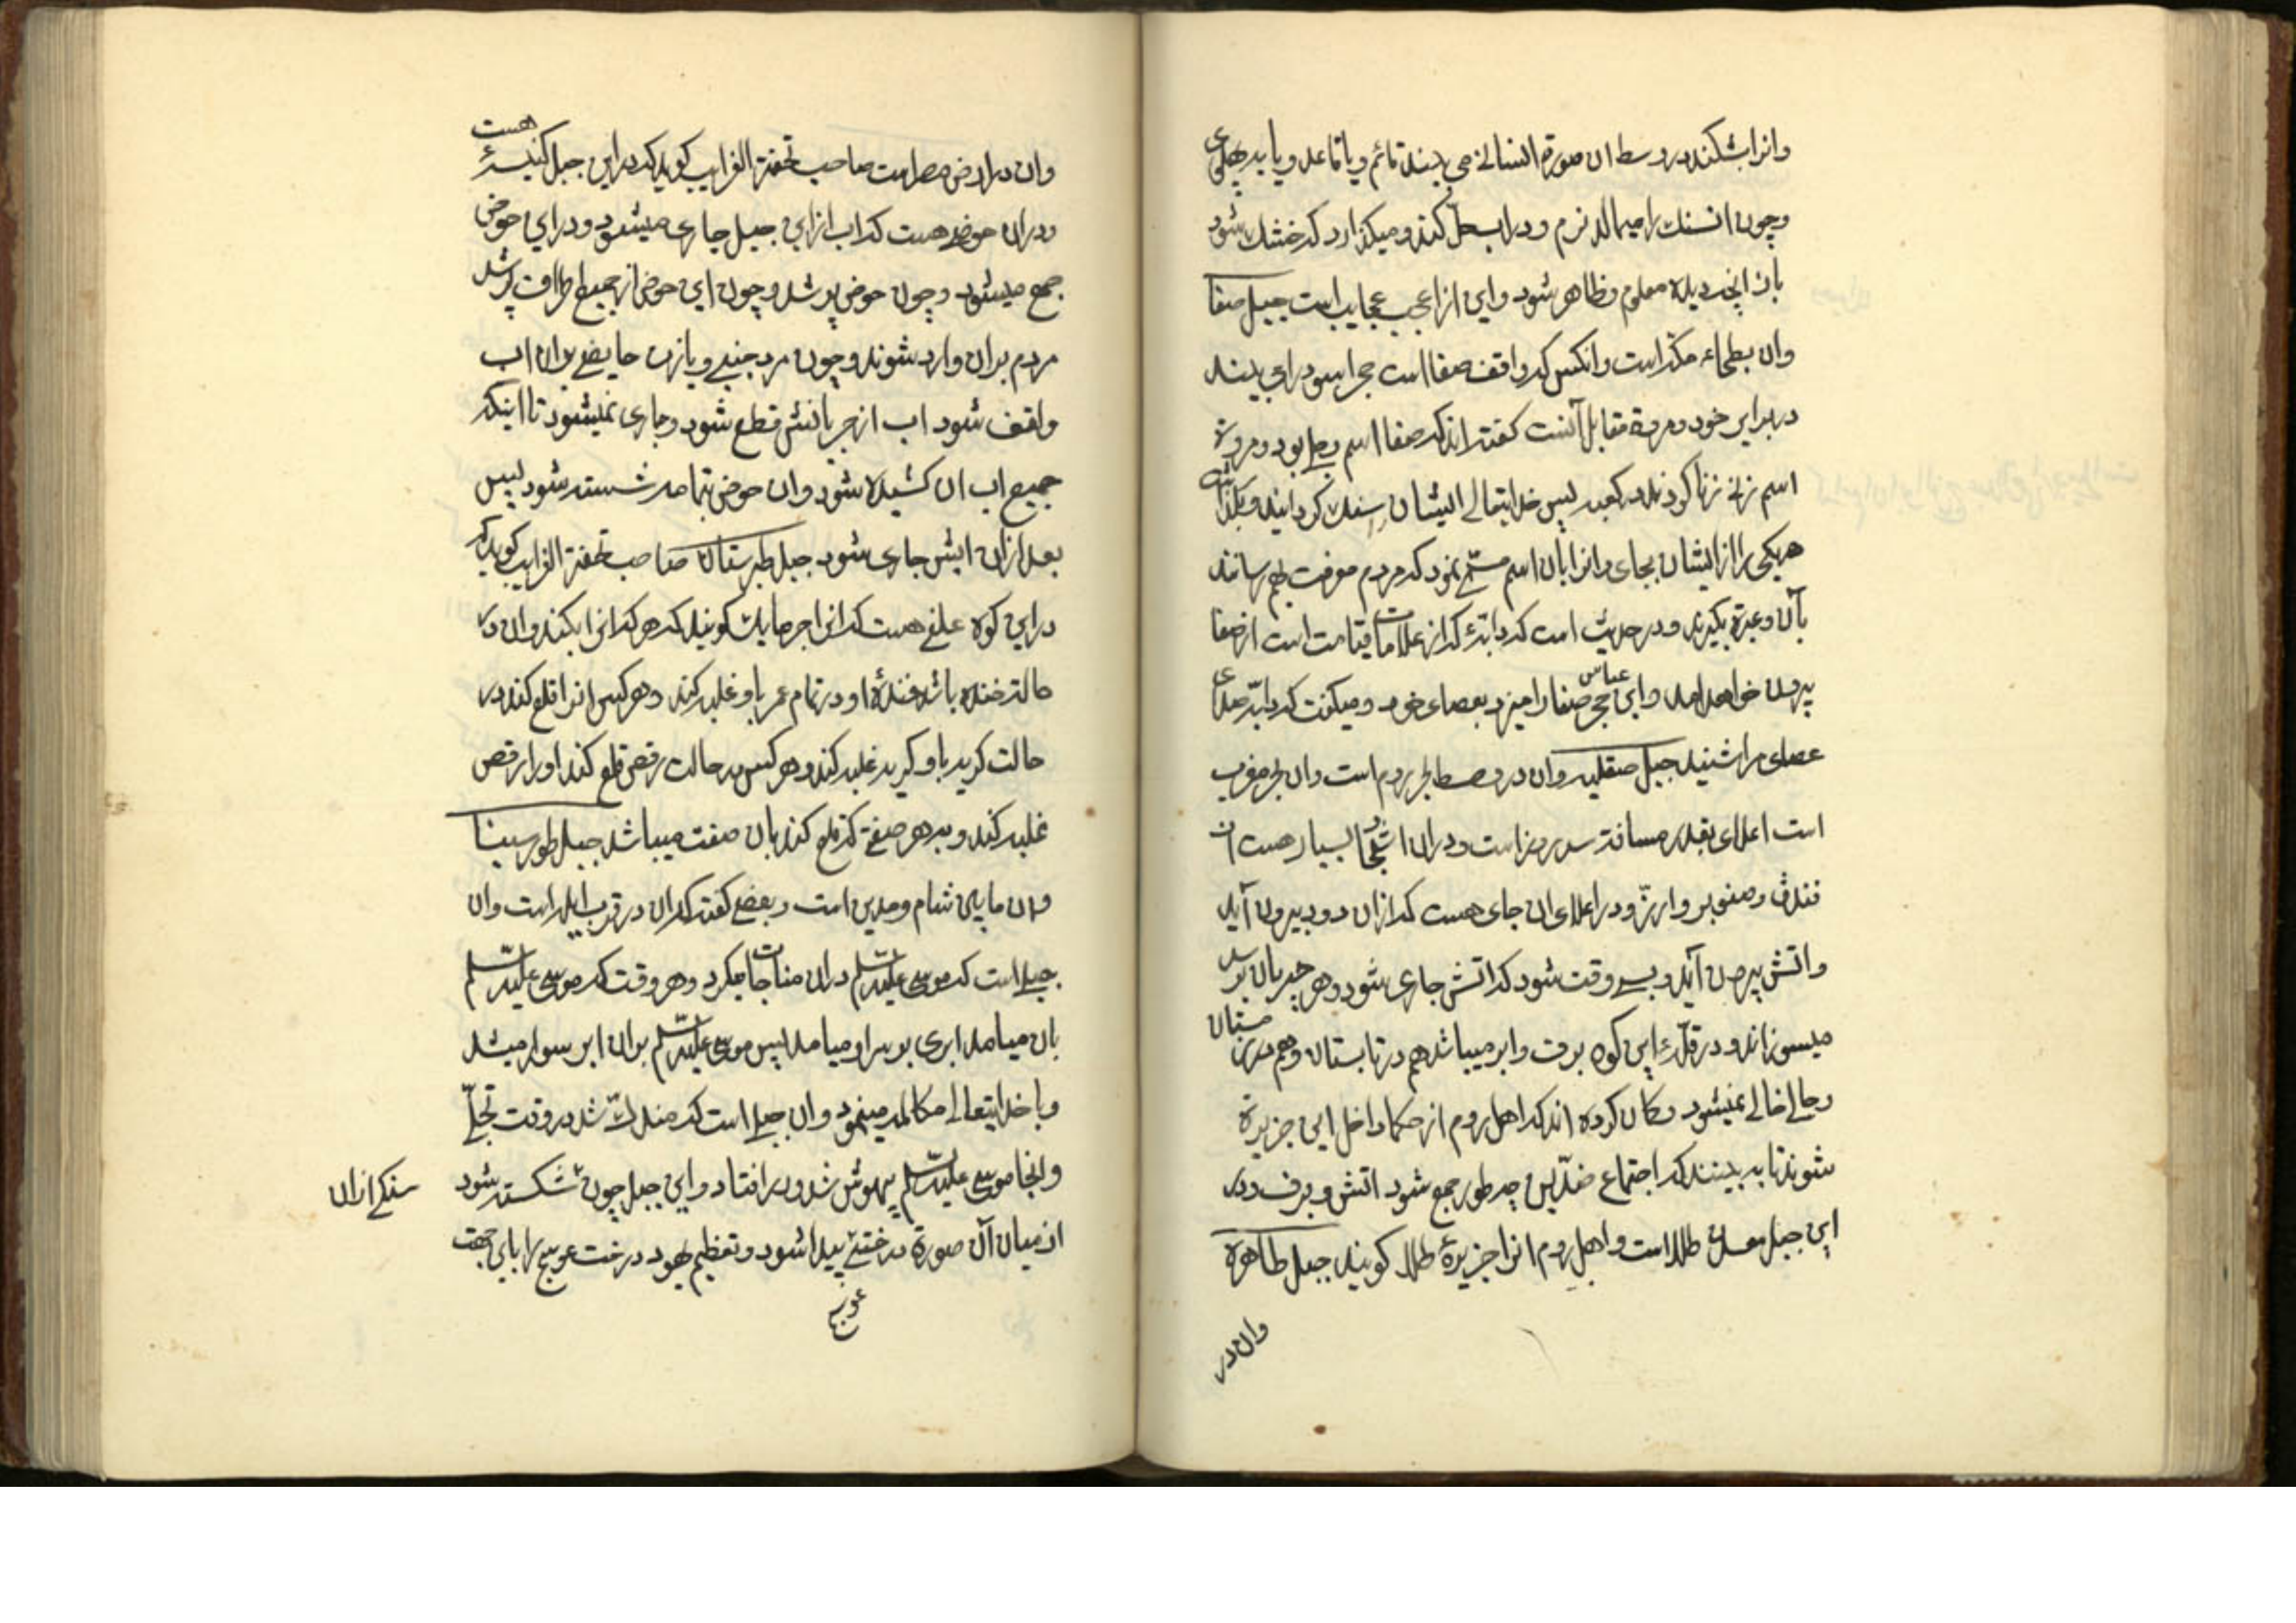 وانرا بشکنند در وسط ان صورة انسانی می بینند قائم و یا قاعد و یا بر پهلوی
و چون ان سنك را میمالند نرم و در اب حلّ کنند و میکذارد که خشك شود
باز انچه دیده معلوم و ظاهر شود و این از اعجب عجایب است جبل صفا
وان بطحاء مکه است و انکس که واقف صفا است حجر اسود را می بیند
در برابر خود و مروة مقابل آنست کفته اند که صفا اسم رجلی بود و مروة
اسم زنی زنا کردند در کعبه پس خدایتعالی ایشان سنك کردانید و بکذاشت
هریکی را از ایشان بجای و انرا بان اسم مسمّی نمود که مردم معرفت بهم رسانند
بآن و عبرة بکیرند و در حدیث است که دابّهٔ که از علامات قیامت است از صفا
بیرون خواهد امد و ابن عباس حجر صفا را میزد بعصای خود و میکفت که دابّه صدای
عصای مرا شنید جبل صقلیه وان در وسط بحر روم است وان بحر مغرب
است اعلای بقدر مسافة سه روز است و در ان اشجار بسیار هست از
فندق و صنوبر و ارز و در اعلای ان جای هست که از ان دود بیرون آید
واتش بیرون آید و بسی وقت شود که اتش جاری شود و هر چیز بان برسد
میسوزاند و در قلّهٔ این کوه برف و ابر میباشد هم در تابستان و هم در زمستان
و حالی خالی نمیشود و کمان کرده اند که اهل روم از حکما داخل این جزیرة
شوند تا به بینند که اجتماع ضدّین چه طور جمع شود اتش و برف و در
این جبل معدن طلا است و اهل روم انرا جزیرهٔ طلا کویند جبل طاهرة
وان در
وان در ارض مصر است صاحب تحفة الغرایب کوید که در این جبل کنیسهٔ هست
و در ان حوضی هست که اب از این جبل جاری میشود و در این حوض
جمع میشود و چون حوض پر شد و چون این حوض از جمیع اطراف پر شد
مردم بر ان وارد شوند و چون مرد جنبی و یا زن حایضی بر ان اب
واقف شود اب از جریانش قطع شود و جاری نمیشود تا اینکه
جمیع اب ان کشیده شود و ان حوض تمامه شسته شود پس
بعد از ان ابش جاری شود جبل طبرستان صاحب تحفة الغرایب کوید که
در این کوه علفی هست که انرا جرمایك کویند که هر که انرا بکند و ان در
حالة خنده باشد خندهٔ او در تمام عمر باو غلبه کند و هر کس انرا قلع کند در
حالت کریه باو کریه غلبه کند و هر کس در حالت رقص قلع کند او را رقص
غلبه کند و بهر صفتی که قلع کند بان صفت میباشد جبل طور سینا
وان ما بین شام و مدین است و بعضی کفته که ان در قرب ایله است وان
جبلی است که موسی علیه السّلم در ان مناجات میکرد و هر وقت که موسی علیه السّلم
بان میامد ابری بر سر او میامد پس موسی علیه السّلم بر ان ابر سوار میشد
و با خدایتعالی مکالمه مینمود و ان جبلی است که مندكّ شد در وقت تجلّی
و انجا موسی علیه السّلم بیهوش شد و در افتاد و این جبل چون شکسته شود
سنکی از ان
از میان آن صورة درختی پیدا شود و تعظیم یهود درخت عوسج را باین جهت
عوسج